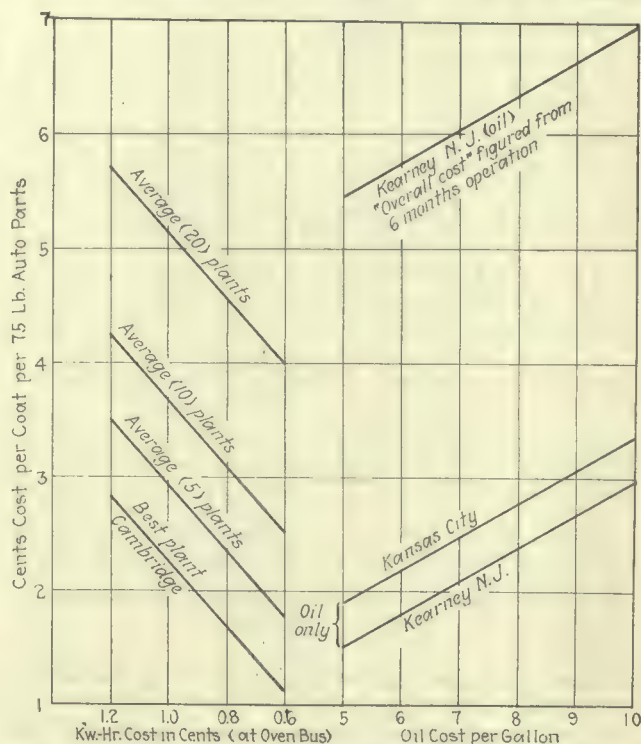 Cents Cost per Coat per 75 Lb. Auto Parts
7
6
5
4
3
2
1
Average (20) plants
Average (10) plants
Average (5) plants
Best plant
Cambridge
Kearney N.J. (oil)
"Overall cost" figured from
6 months operation
Kansas City
Kearney N.J.
Oil
only
1.2 1.0 0.8 0.6 5 6 7 8 9 10
Kw.-Hr. Cost in Cents (at Oven Bus) Oil Cost per Gallon